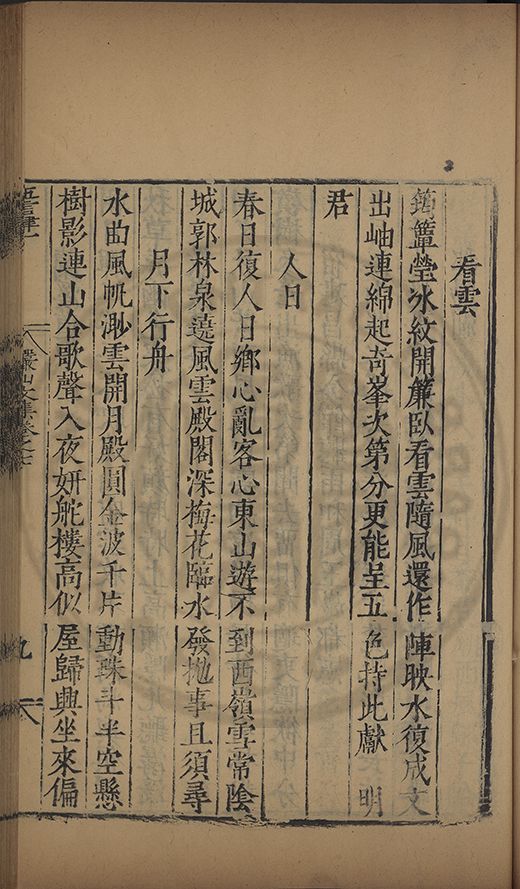 看雲
簟瑩冰紋開簾臥看雲隨風還作陣映水復成文
出岫連綿起奇峯次第分更能呈五色持此獻　明
君
人日
春日復人日鄉心亂客心東山遊不到西嶺雪常陰
城郭林泉遶風雲殿閣深梅花臨水發拋事且須尋
月下行舟
水曲風帆渺雲開月殿圓金波千片動珠斗半空懸
樹影連山合歌聲入夜妍舵樓高似屋歸興坐來偏
文集卷之
九